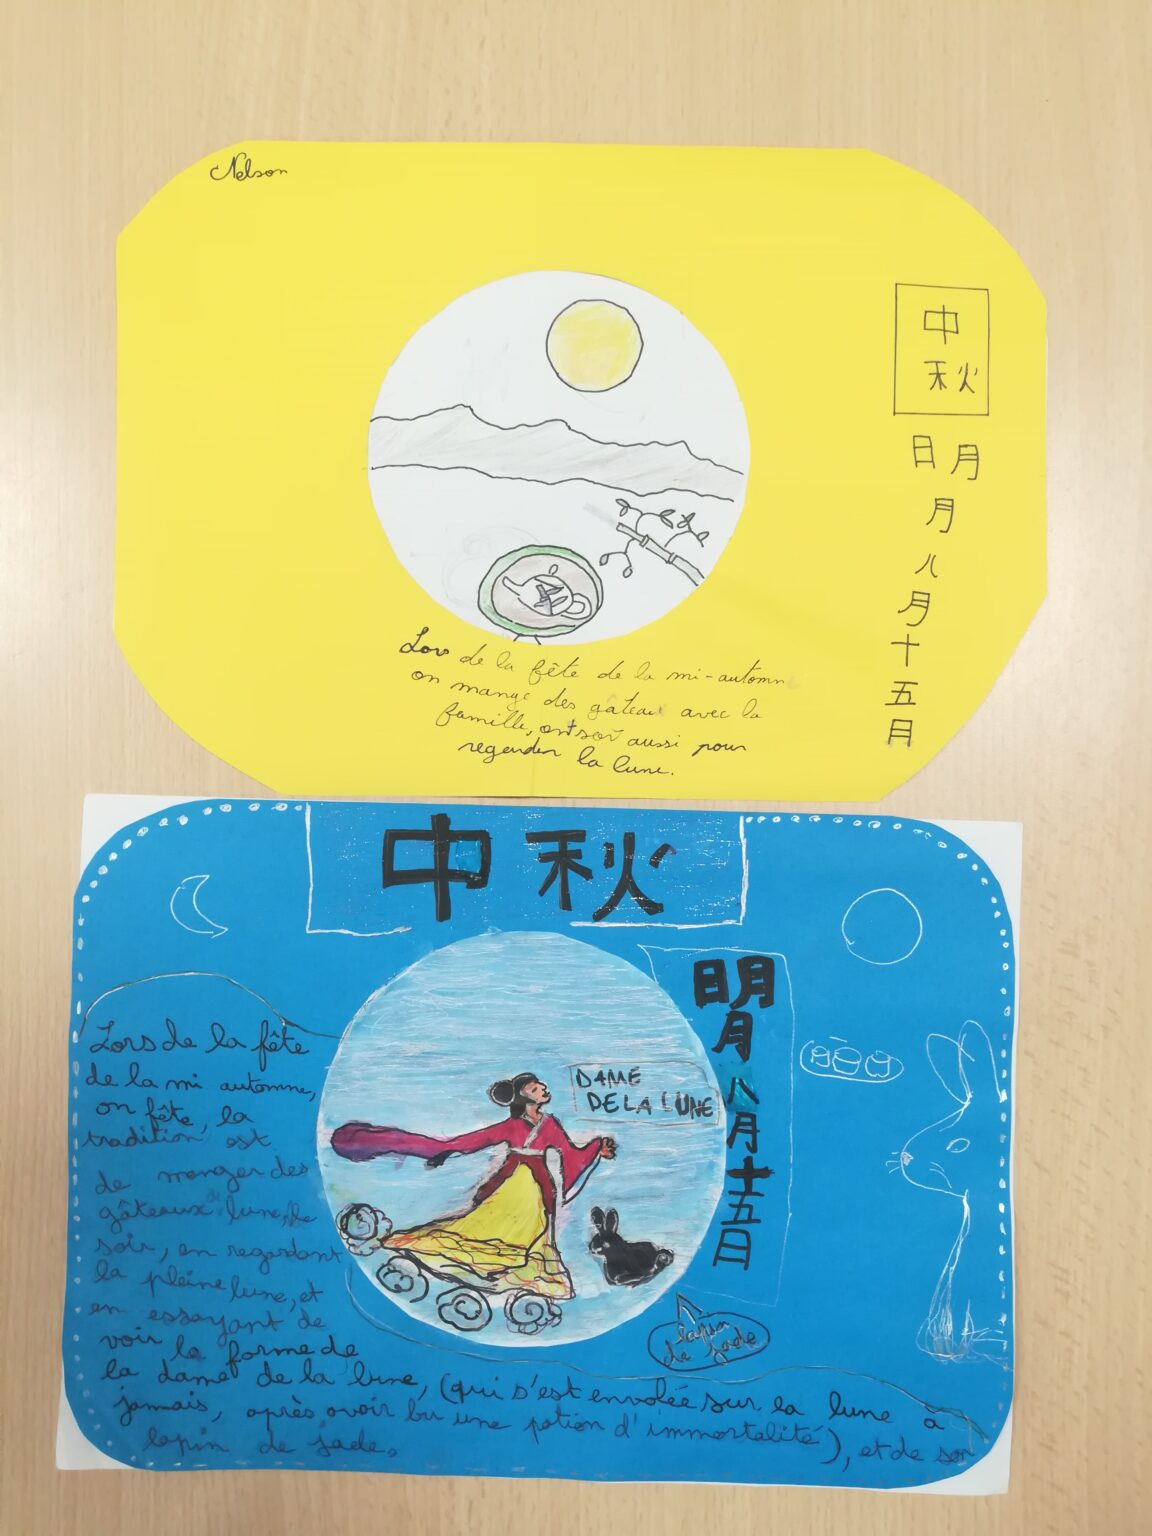 Nelson
中
秋
日月
月
八
月
十
五
月
Lors de la fête de la mi-automne
on mange des gâteaux avec la
famille, on sort aussi pour
regarder la lune.
中秋
明
月
八
月
十
五
日
DAME
DE LA LUNE
Lors de la fête
de la mi automne,
on fête, la
tradition est
de manger des
gâteaux de lune, le
soir, en regardant
la pleine lune, et
en essayant de
voir la forme de
la dame de la lune, (qui s'est envolée sur la lune à
jamais, après avoir bu une potion d'immortalité), et de son
lapin de jade.
lapin
de jade